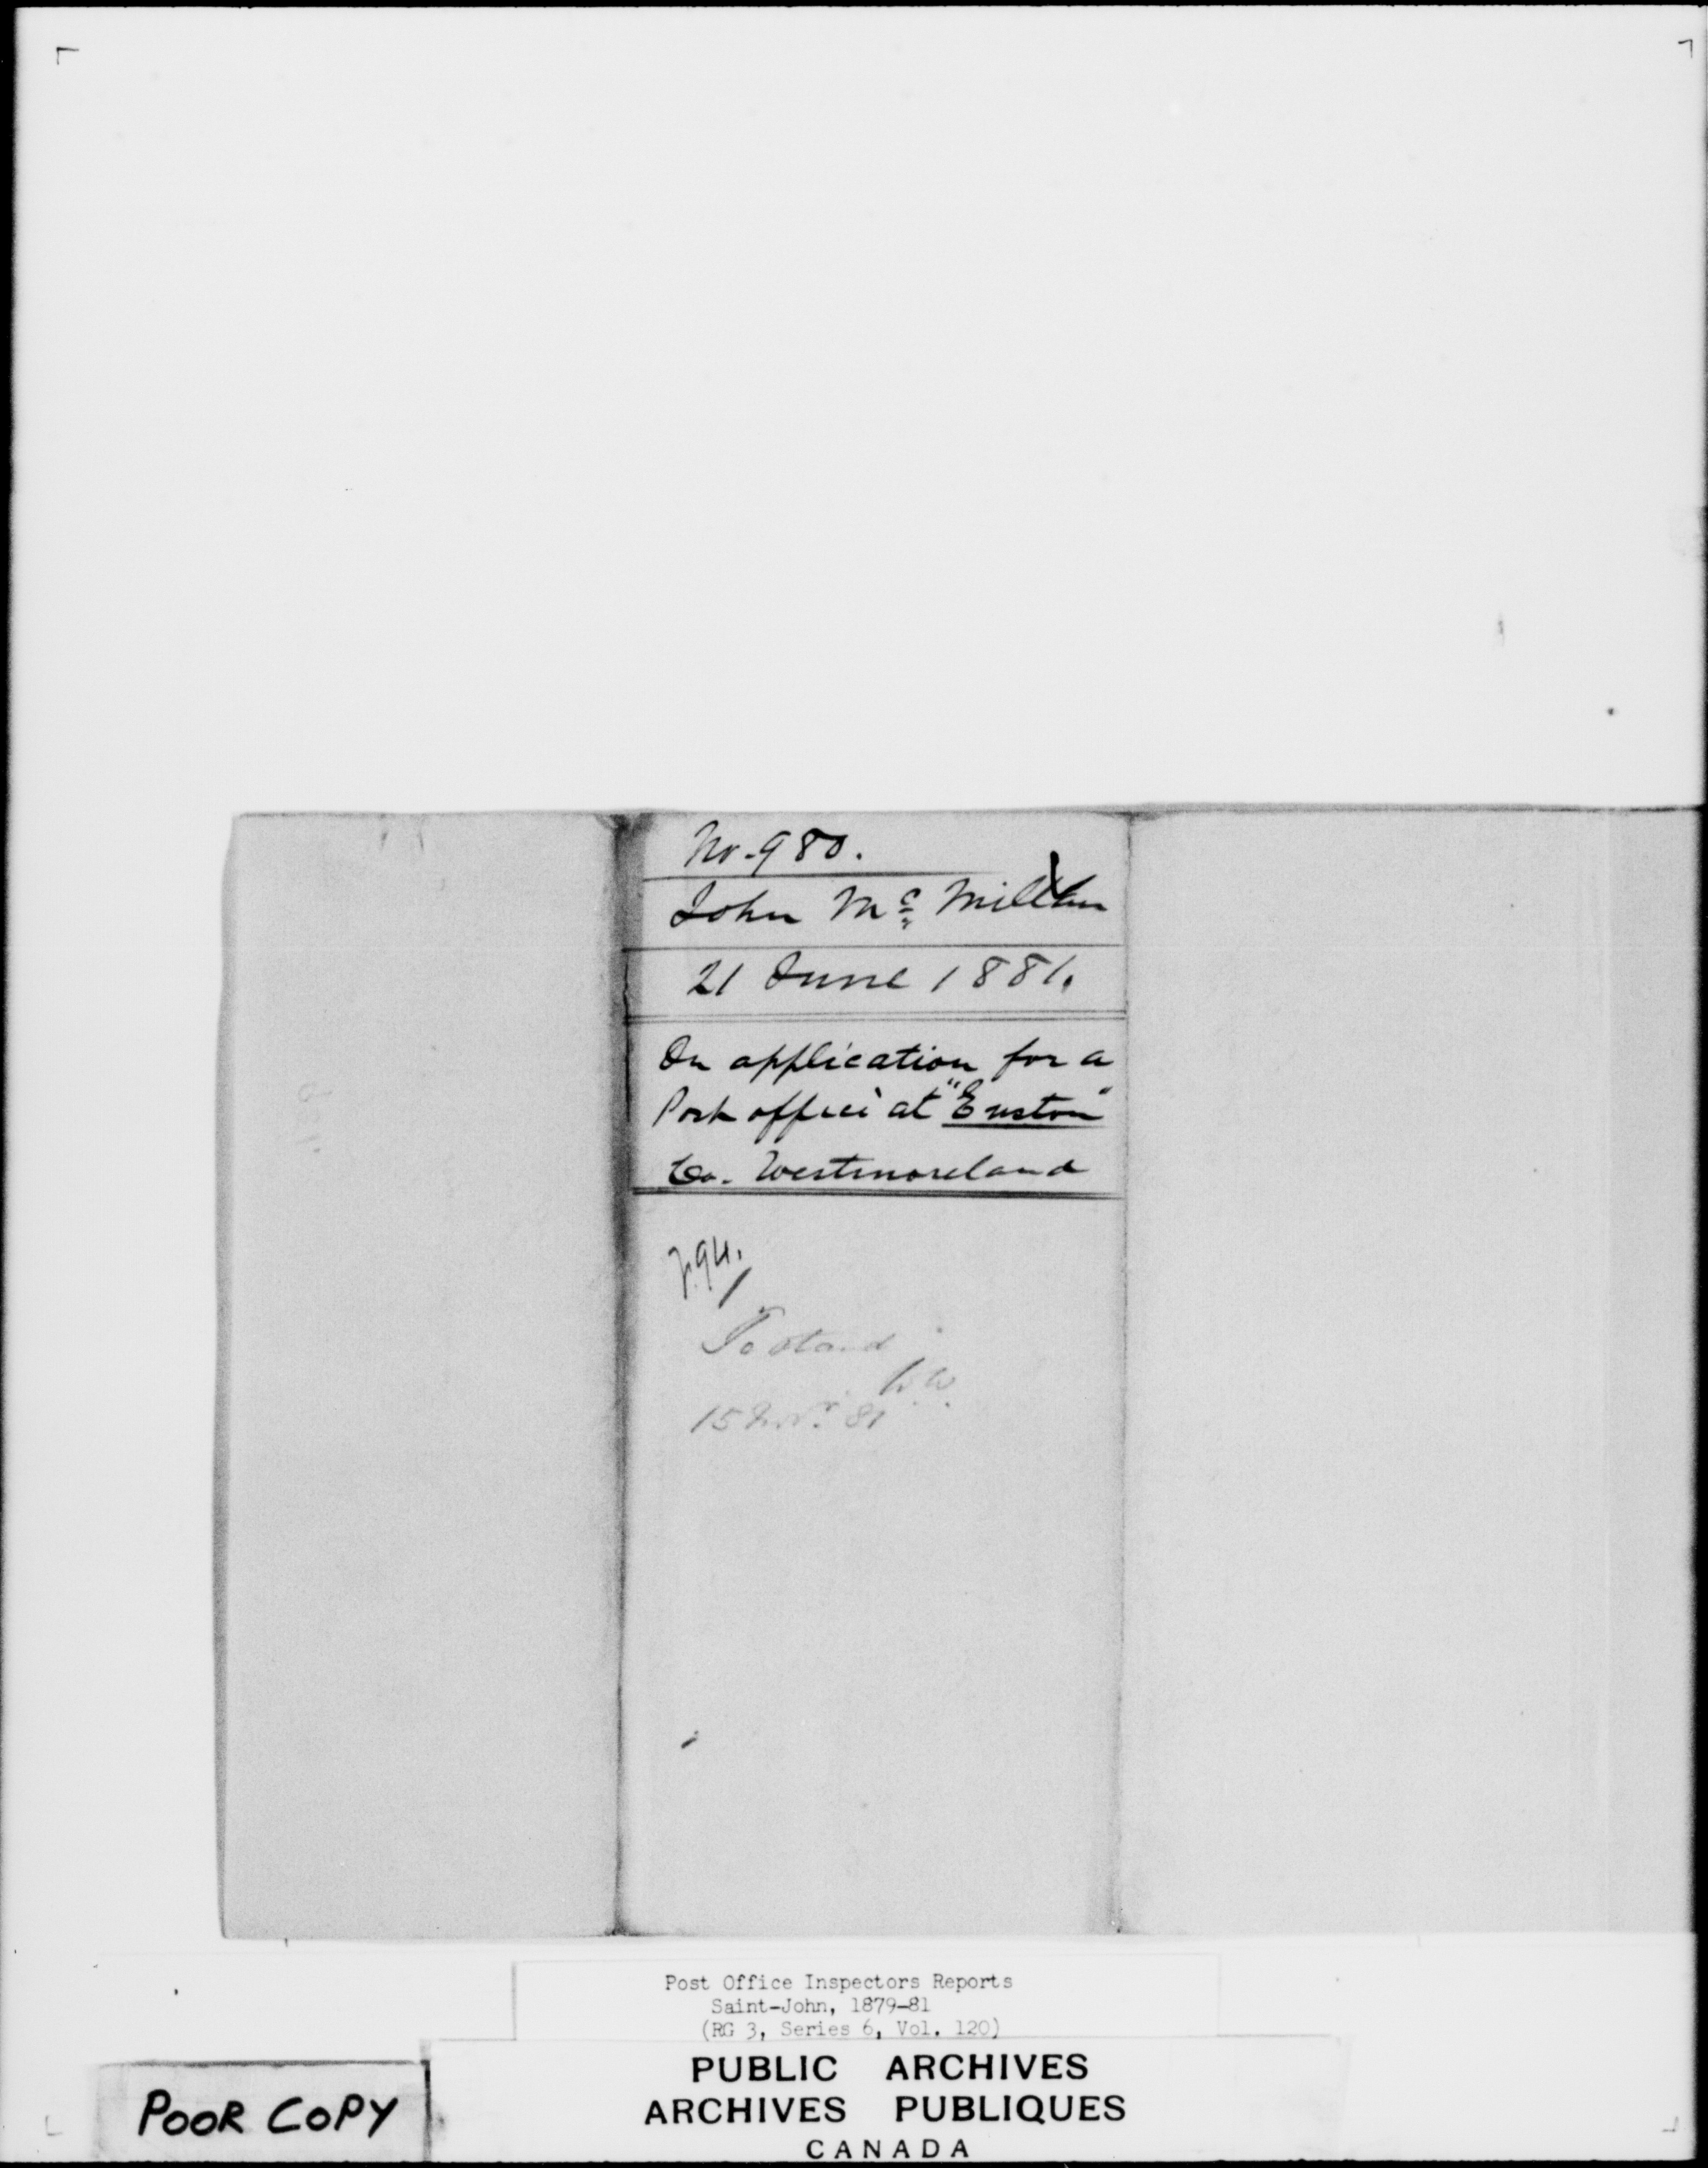 No. 980.
John Mc Millan
21 June 1881.
On application for a
Post office at "Euston"
Co. Westmoreland
To stand
15 Novr. 81
Post Office Inspectors Reports
Saint-John, 1879-81
(RG 3, Series 6, Vol. 120)
PUBLIC ARCHIVES
ARCHIVES PUBLIQUES
CANADA
POOR COPY